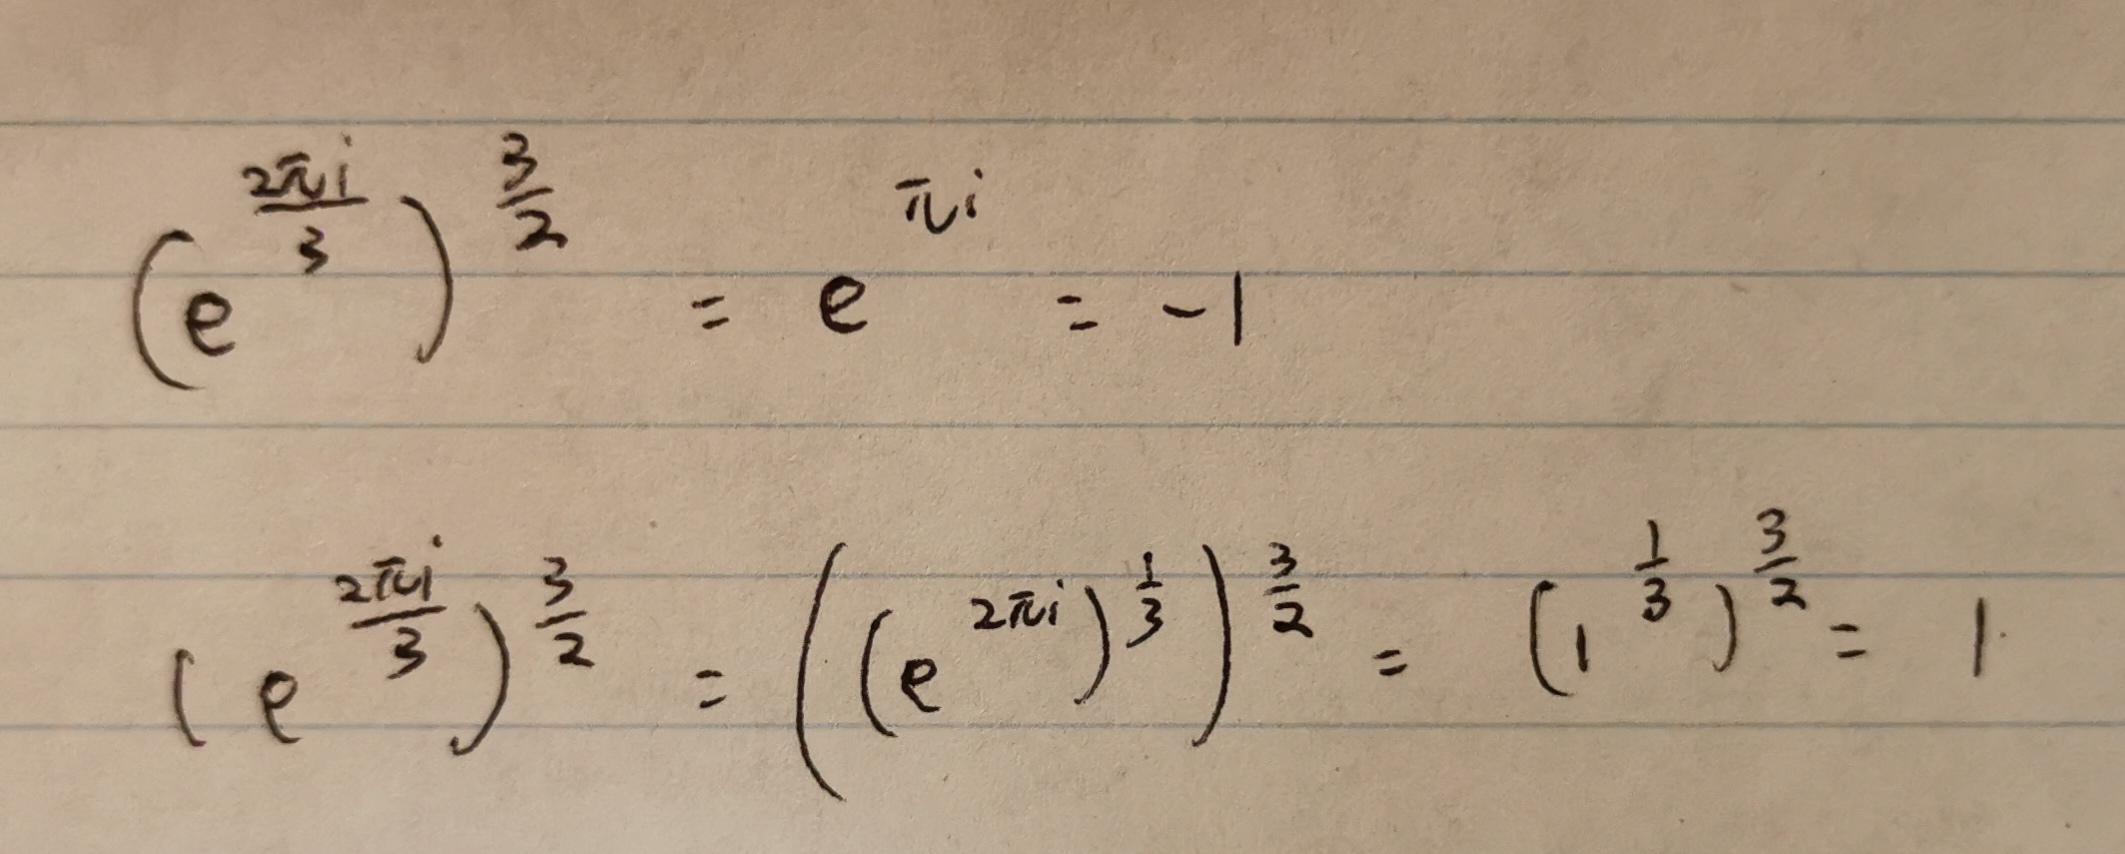 (e^{\frac{2πi}{3}})^{\frac{3}{2}} = e^{πi} = -1
(e^{\frac{2πi}{3}})^{\frac{3}{2}} = ((e^{2πi})^{\frac{1}{3}})^{\frac{3}{2}} = (1^{\frac{1}{3}})^{\frac{3}{2}} = 1